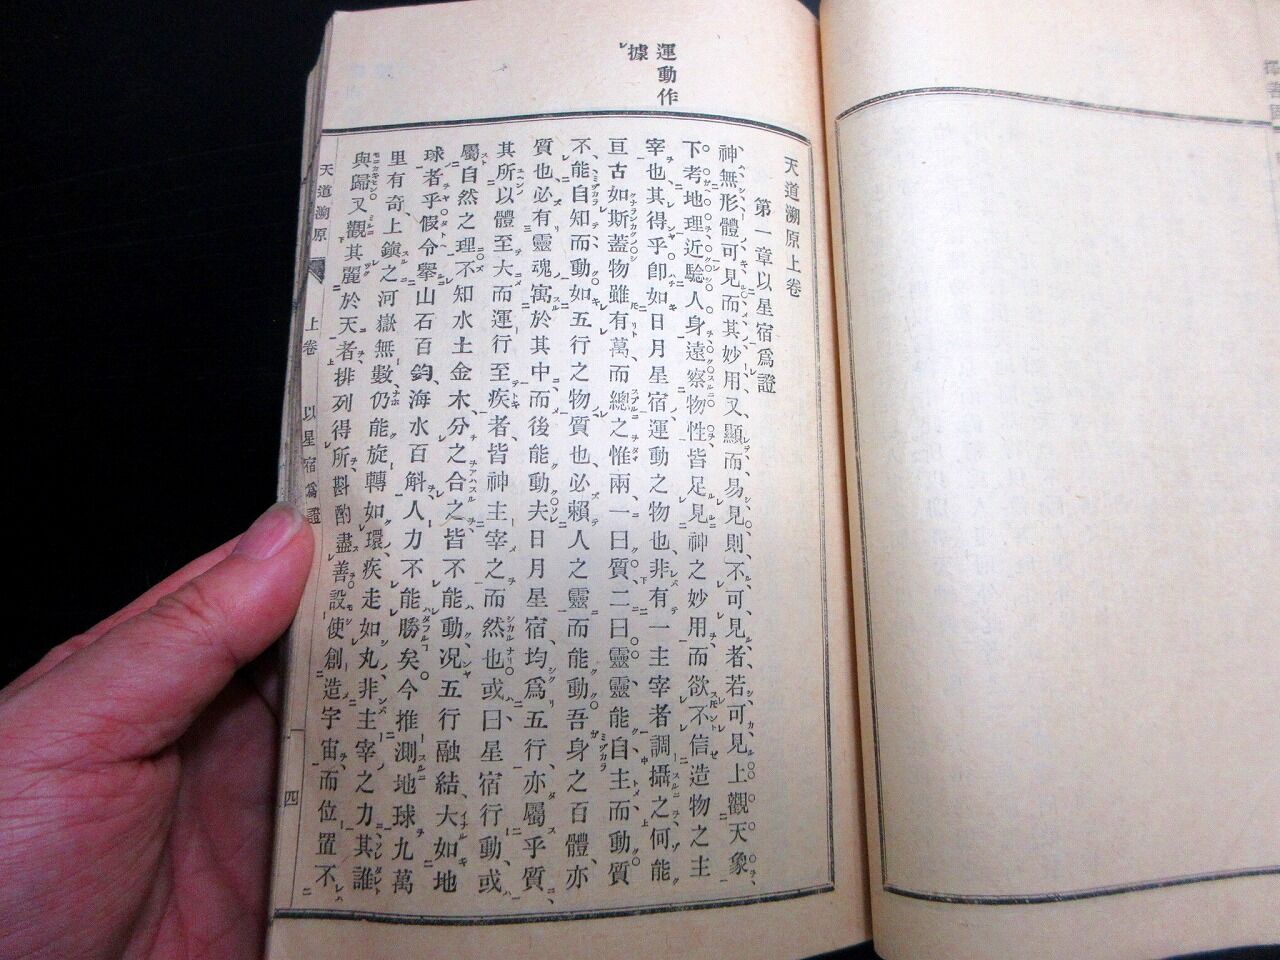 運動作
據
天道溯原上卷
第一章以星宿爲證
神無形體可見而其妙用又顯而易見則不可見者若可見上觀天象
下考地理近驗人身遠察物性皆足見神之妙用而欲不信造物之主
宰也其得乎卽如日月星宿運動之物也非有一主宰者調攝之何能
亘古如斯蓋物雖有萬而總之惟兩一曰質二曰靈靈能自主而動質
不能自知而動如五行之物質也必賴人之靈而能動吾身之百體亦
質也必有靈魂寓於其中而後能動夫日月星宿均爲五行亦屬乎質
其所以體至大而運行至疾者皆神主宰之而然也或曰星宿行動或
屬自然之理不知水土金木分之合之皆不能動况五行融結大如地
球者乎假令舉山石百鈞海水百斛人力不能勝矣今推測地球九萬
里有奇上鎮之河嶽無數仍能旋轉如環疾走如丸非主宰之力其誰
與歸又觀其麗於天者排列得所斟酌盡善設使創造宇宙而位置不
天道溯原
上卷
以星宿爲證
四